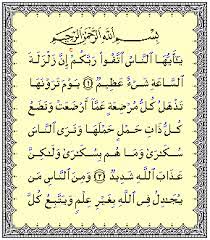 بِسْمِ ٱللَّهِ ٱلرَّحْمَٰنِ ٱلرَّحِيمِ
يَٰٓأَيُّهَا ٱلنَّاسُ ٱتَّقُوا۟ رَبَّكُمْ ۚ إِنَّ زَلْزَلَةَ
ٱلسَّاعَةِ شَىْءٌ عَظِيمٌ ۝١ يَوْمَ تَرَوْنَهَا
تَذْهَلُ كُلُّ مُرْضِعَةٍ عَمَّآ أَرْضَعَتْ وَتَضَعُ
كُلُّ ذَاتِ حَمْلٍ حَمْلَهَا وَتَرَى ٱلنَّاسَ
سُكَٰرَىٰ وَمَا هُم بِسُكَٰرَىٰ وَلَٰكِنَّ
عَذَابَ ٱللَّهِ شَدِيدٌ ۝٢ وَمِنَ ٱلنَّاسِ مَن
يُجَٰدِلُ فِى ٱللَّهِ بِغَيْرِ عِلْمٍ وَيَتَّبِعُ كُلَّ